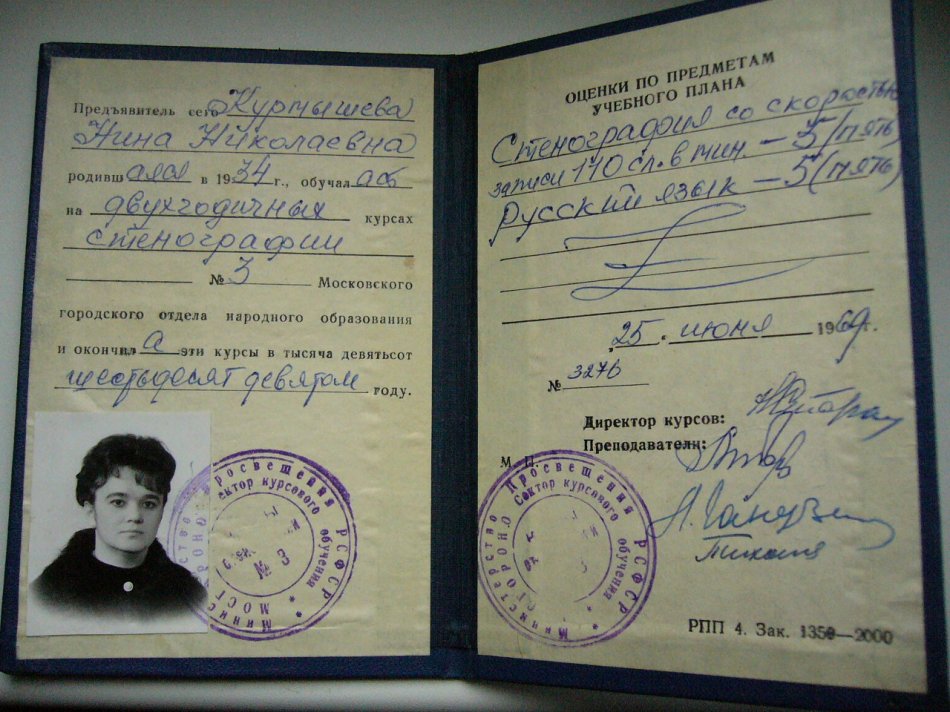 Предъявитель сего Курмышева
Нина Николаевна
родившаяся в 1934 г., обучалась
на двухгодичных курсах
стенографии
№ 3 Московского
городского отдела народного образования
и окончила эти курсы в тысяча девятьсот
шестьдесят девятом году.
Министерство Просвещения РСФСР
МОСГОРОНО Сектор курсового обучения
№ 3
ОЦЕНКИ ПО ПРЕДМЕТАМ
УЧЕБНОГО ПЛАНА
Стенография со скоростью
записи 110 сл. в мин. – 5 (пять)
Русский язык – 5 (пять)
25 июня 1969 г.
№ 3276
Директор курсов:
Преподаватели:
М. П.
Министерство Просвещения РСФСР
МОСГОРОНО Сектор курсового обучения
3
РПП 4. Зак. 1350—2000